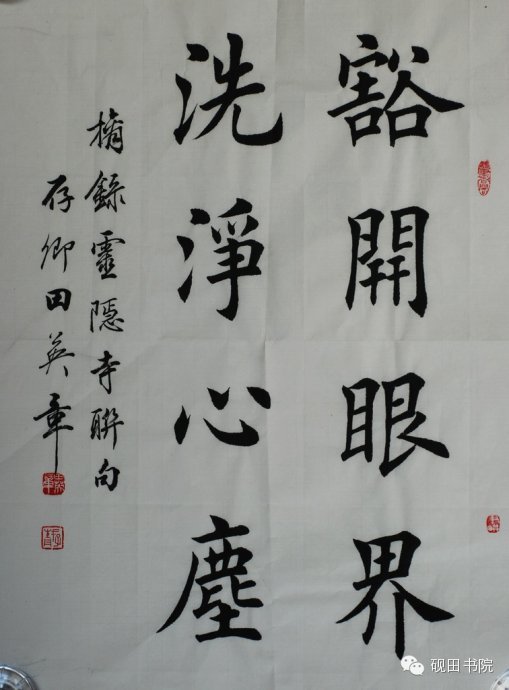 豁開眼界
洗淨心塵
摘錄靈隱寺聯句
存卿田英章
砚田书院